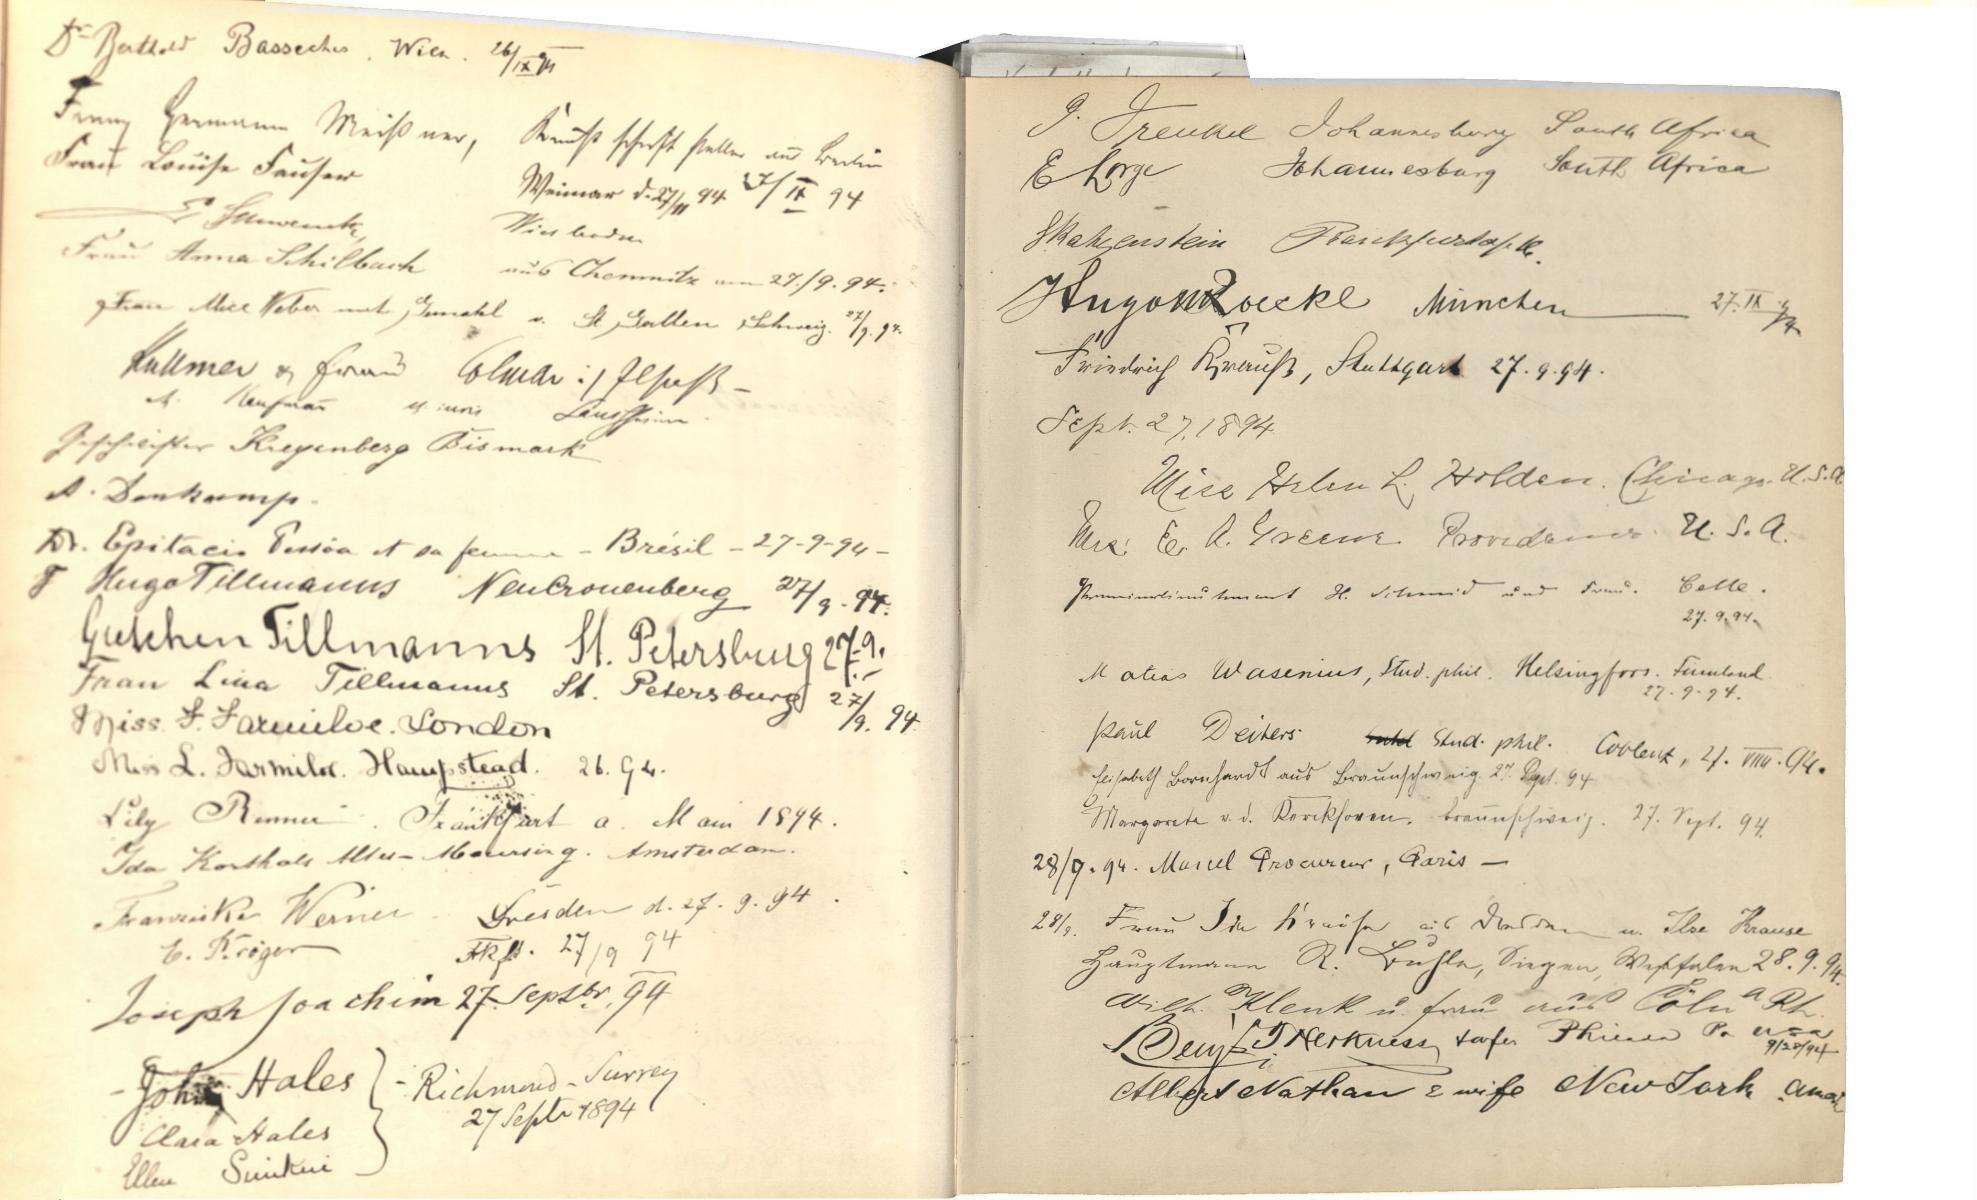 Dr Berthold Basseches. Wien. 26/IX 94
Franz Hermann Meißner, Kunstschriftsteller aus Berlin
Frau Louise Fauser Weimar d. 27/9 94 27/IX 94
Wiesbaden
Frau Anna Schilbach aus Chemnitz am 27./9. 94.
Frau Alice Weber mit Gemahl v. St. Gallen Schweiz. 27/9. 94.
Kullmer & Frau Colmar i/ Elsaß –
Geschwister Kregenberg Bismark
A. Donkamp.
Dr. Epitacio Pessôa et sa femme – Brésil – 27-9-94 –
Hugo Tillmanns Neucronenberg 27/9. 94.
Gretchen Tillmanns St. Petersburg 27.9.
Frau Lina Tillmanns St. Petersburg 27/9. 94
Miss F. Farmiloe. London
Miss L. Farmiloe. Hampstead. 26. 94.
Lily Renner. Frankfurt a. Main 1894.
Ida Korthals Altes – Moursing. Amsterdam.
Franziska Werner Dresden d. 27. 9. 94.
C. Kröger Fkft. 27/9 94
Joseph Joachim 27 Septbr. 94
– John Hales } – Richmond – Surrey
27 Septr 1894
Clara Hales
Ellen
J. Frenkel Johannesburg South Africa
E Lorge Johannesburg South Africa
S Katzenstein Frankfurt a/M.
Hugo Röckl München 27. IX 94
Friedrich Krauß, Stuttgart 27. 9. 94.
Sept. 27. 1894
Miss Helen L. Holden. Chicago. U.S.A
Mrs. E. A. Greene. Providence. U. S. A.
Premierlieutenant H. Schmid und Frau. Celle.
27. 9. 94.
Matias Wasenius, Stud. phil. Helsingfors. Finnland.
27. 9. 94.
Paul Deiters Stud. phil. Coblenz, 27. VIIII. 94.
Elisabeth Bornhardt aus Braunschweig. 27. Sept. 94
Margarete v. d. Kerckhoven. Braunschweig. 27. Sept. 94.
28/9. 94. Marcel Procureur, Paris –
28/9. Frau Ida Krause aus Dresden u. Ilse Krause
Hauptmann R. Buhle, Siegen, Westfalen 28. 9. 94.
Wilh. Klenk u. Frau aus Cöln a Rh.
Benj. F Phila Pa USA
9/28/94
Albert Nathan & wife New York. Amer